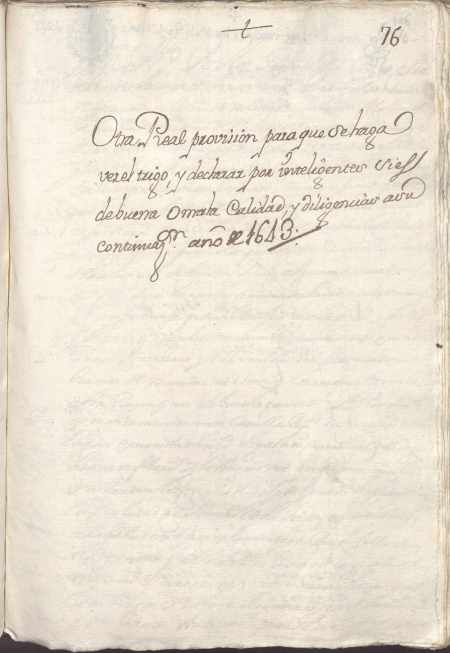 76
Otra Real provision para que se haga
ver el trigo, y declarar por inteligentes si es
de buena o mala Calidad, y diligencias a su
continua.ⁿ año de 1643.